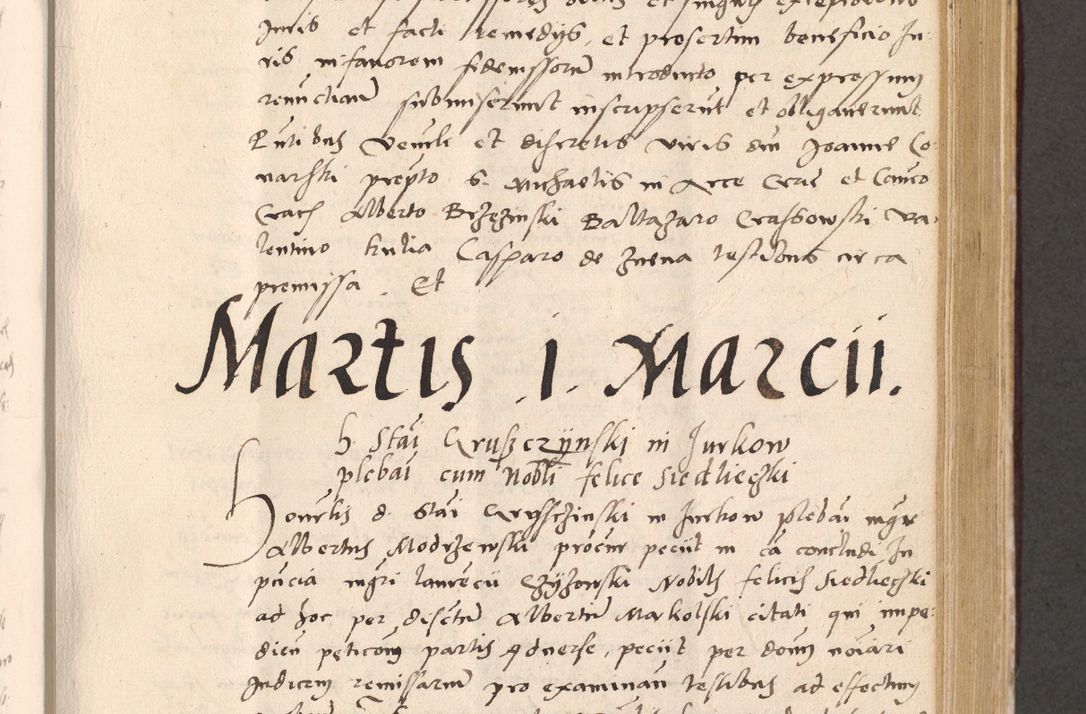 Juris et facti remedijs, et presertim beneficio Ju-
ris in favorem fideiussorum introducto per expressum
renunctiam submiserunt inscripserunt et obligaverunt
Pntibus Venerle et discretis viris dm Joanne Co-
narski prepto S. Michaelis in Arce Crac et Canco
Crac Alberto Brzezinski Baltazaro Grabowski Va-
lentino Kulia Casparo de Znena testibus circa
premissa. Et
Martis .1. Marcii.
h Stai Gruszczÿnski in Jurkow
plebai cum Nobli felice Siedlieczki
Honrlis d. Stai Grusczinski in Jurkow plebai mgr
Albertus Modrzewski procur peciit in ca concludi In
pncia mgri laurecii Nobilis felicis Siedlieczki
ad hoc per discretum Albertum Makolski citati qui impe-
dien peticom partis adverse, peciit per dominum
Judicem remissariam pro examinan testibus ad effectum